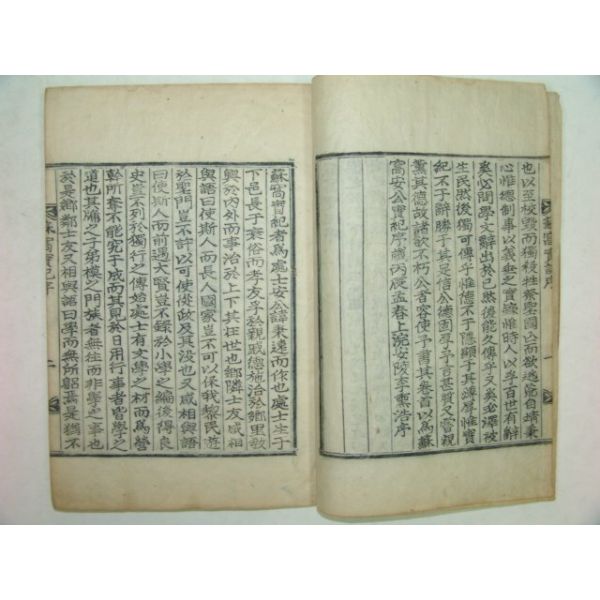 也以至校毁而獨殺牲祭聖國亡而欲逃寃自靖秉
心惟德制事以義垂之實錄惟時人以孚百世有辭
奚必問學文辭出於已然後能久傳乎又奚必澤被
生民然後獨可傳乎惟德不于隱顯于其蹲聲惟實
紀不于辭勝于其足信公德固孚乎言甚質又當親
熏其德故諸歌不朽公者容使予書其卷首以爲蘇
窩安公實紀序歲丙辰孟春上浣安陵李手熏浩序
蘇窩實紀者爲處士安公諱秉遠而作也處士生于
下邑長于衰俗而孝友孚於親戚德施洽於鄕里敎
興於內外而事治於上下其在世也鄕隣士友咸相
與語曰使斯人而長人國家豈不可以保我黎民遊
於聖門豈不許以可使從政及其沒也又咸相與語
曰使斯人而前遇大賢豈不錄於小學之編後得良
史豈不列於獨行之傳始處士有文學之材而爲營
幹所奪不能究于成而其見於日用行事者皆學之
道也其牖之子弟模之門族者無往而非學之事也
於是鄕鄰士友又相與語曰學而無所躬焉是猶不
蘇窩實紀序
二